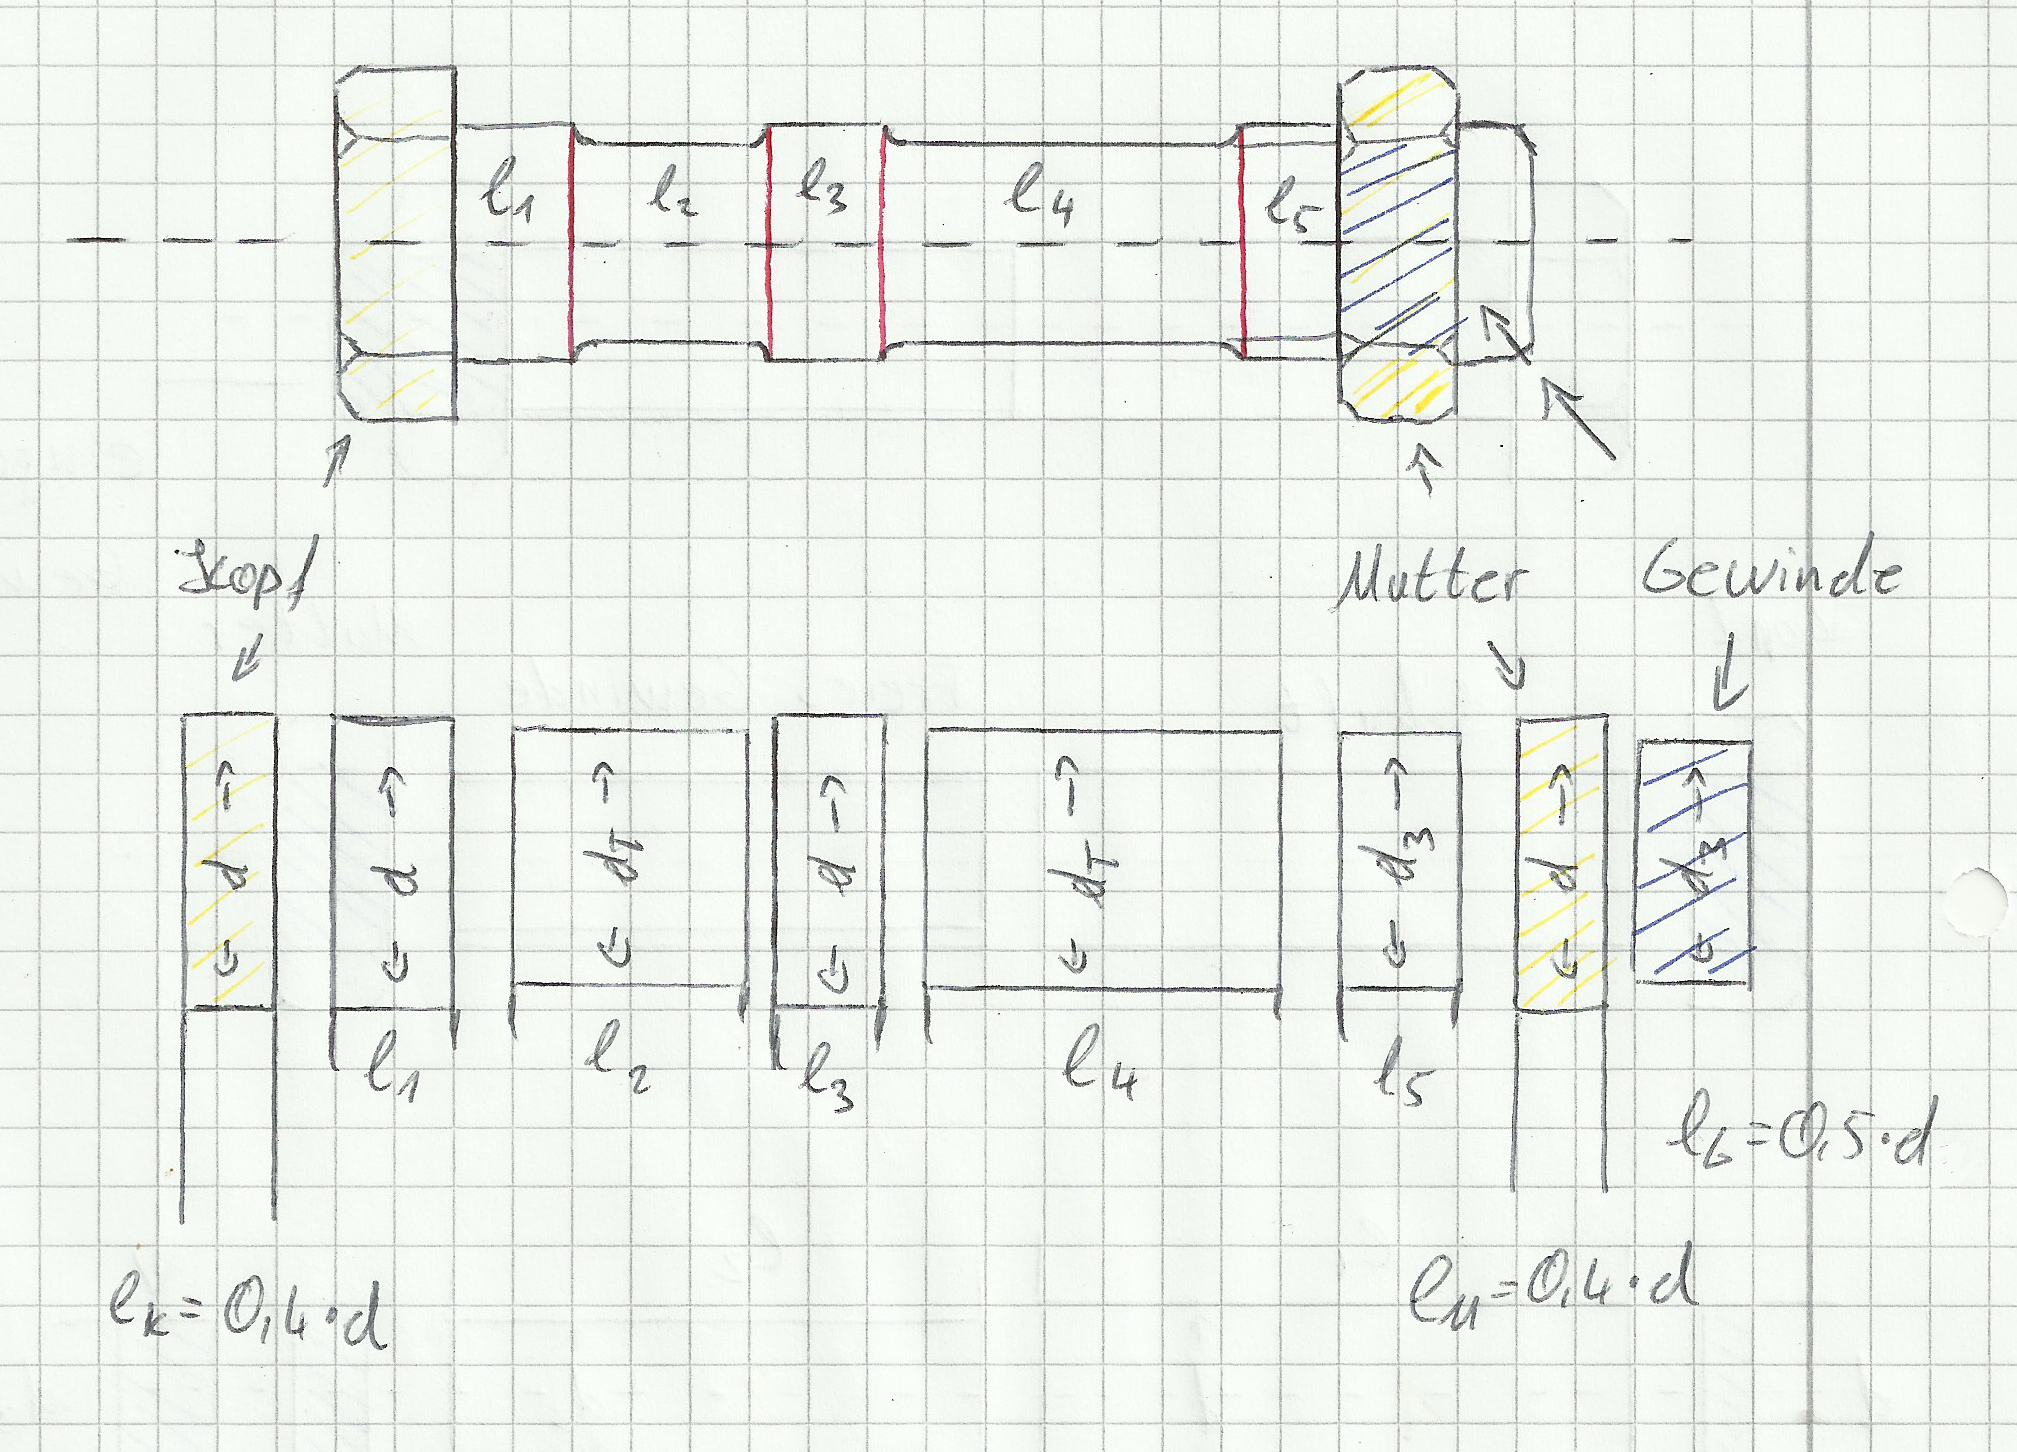 l1 l2 l3 l4 l5
Kopf Mutter Gewinde
d d dT d dT d3 d d3
l1 l2 l3 l4 l5
lG=0,5·d
lK=0,4·d lM=0,4·d